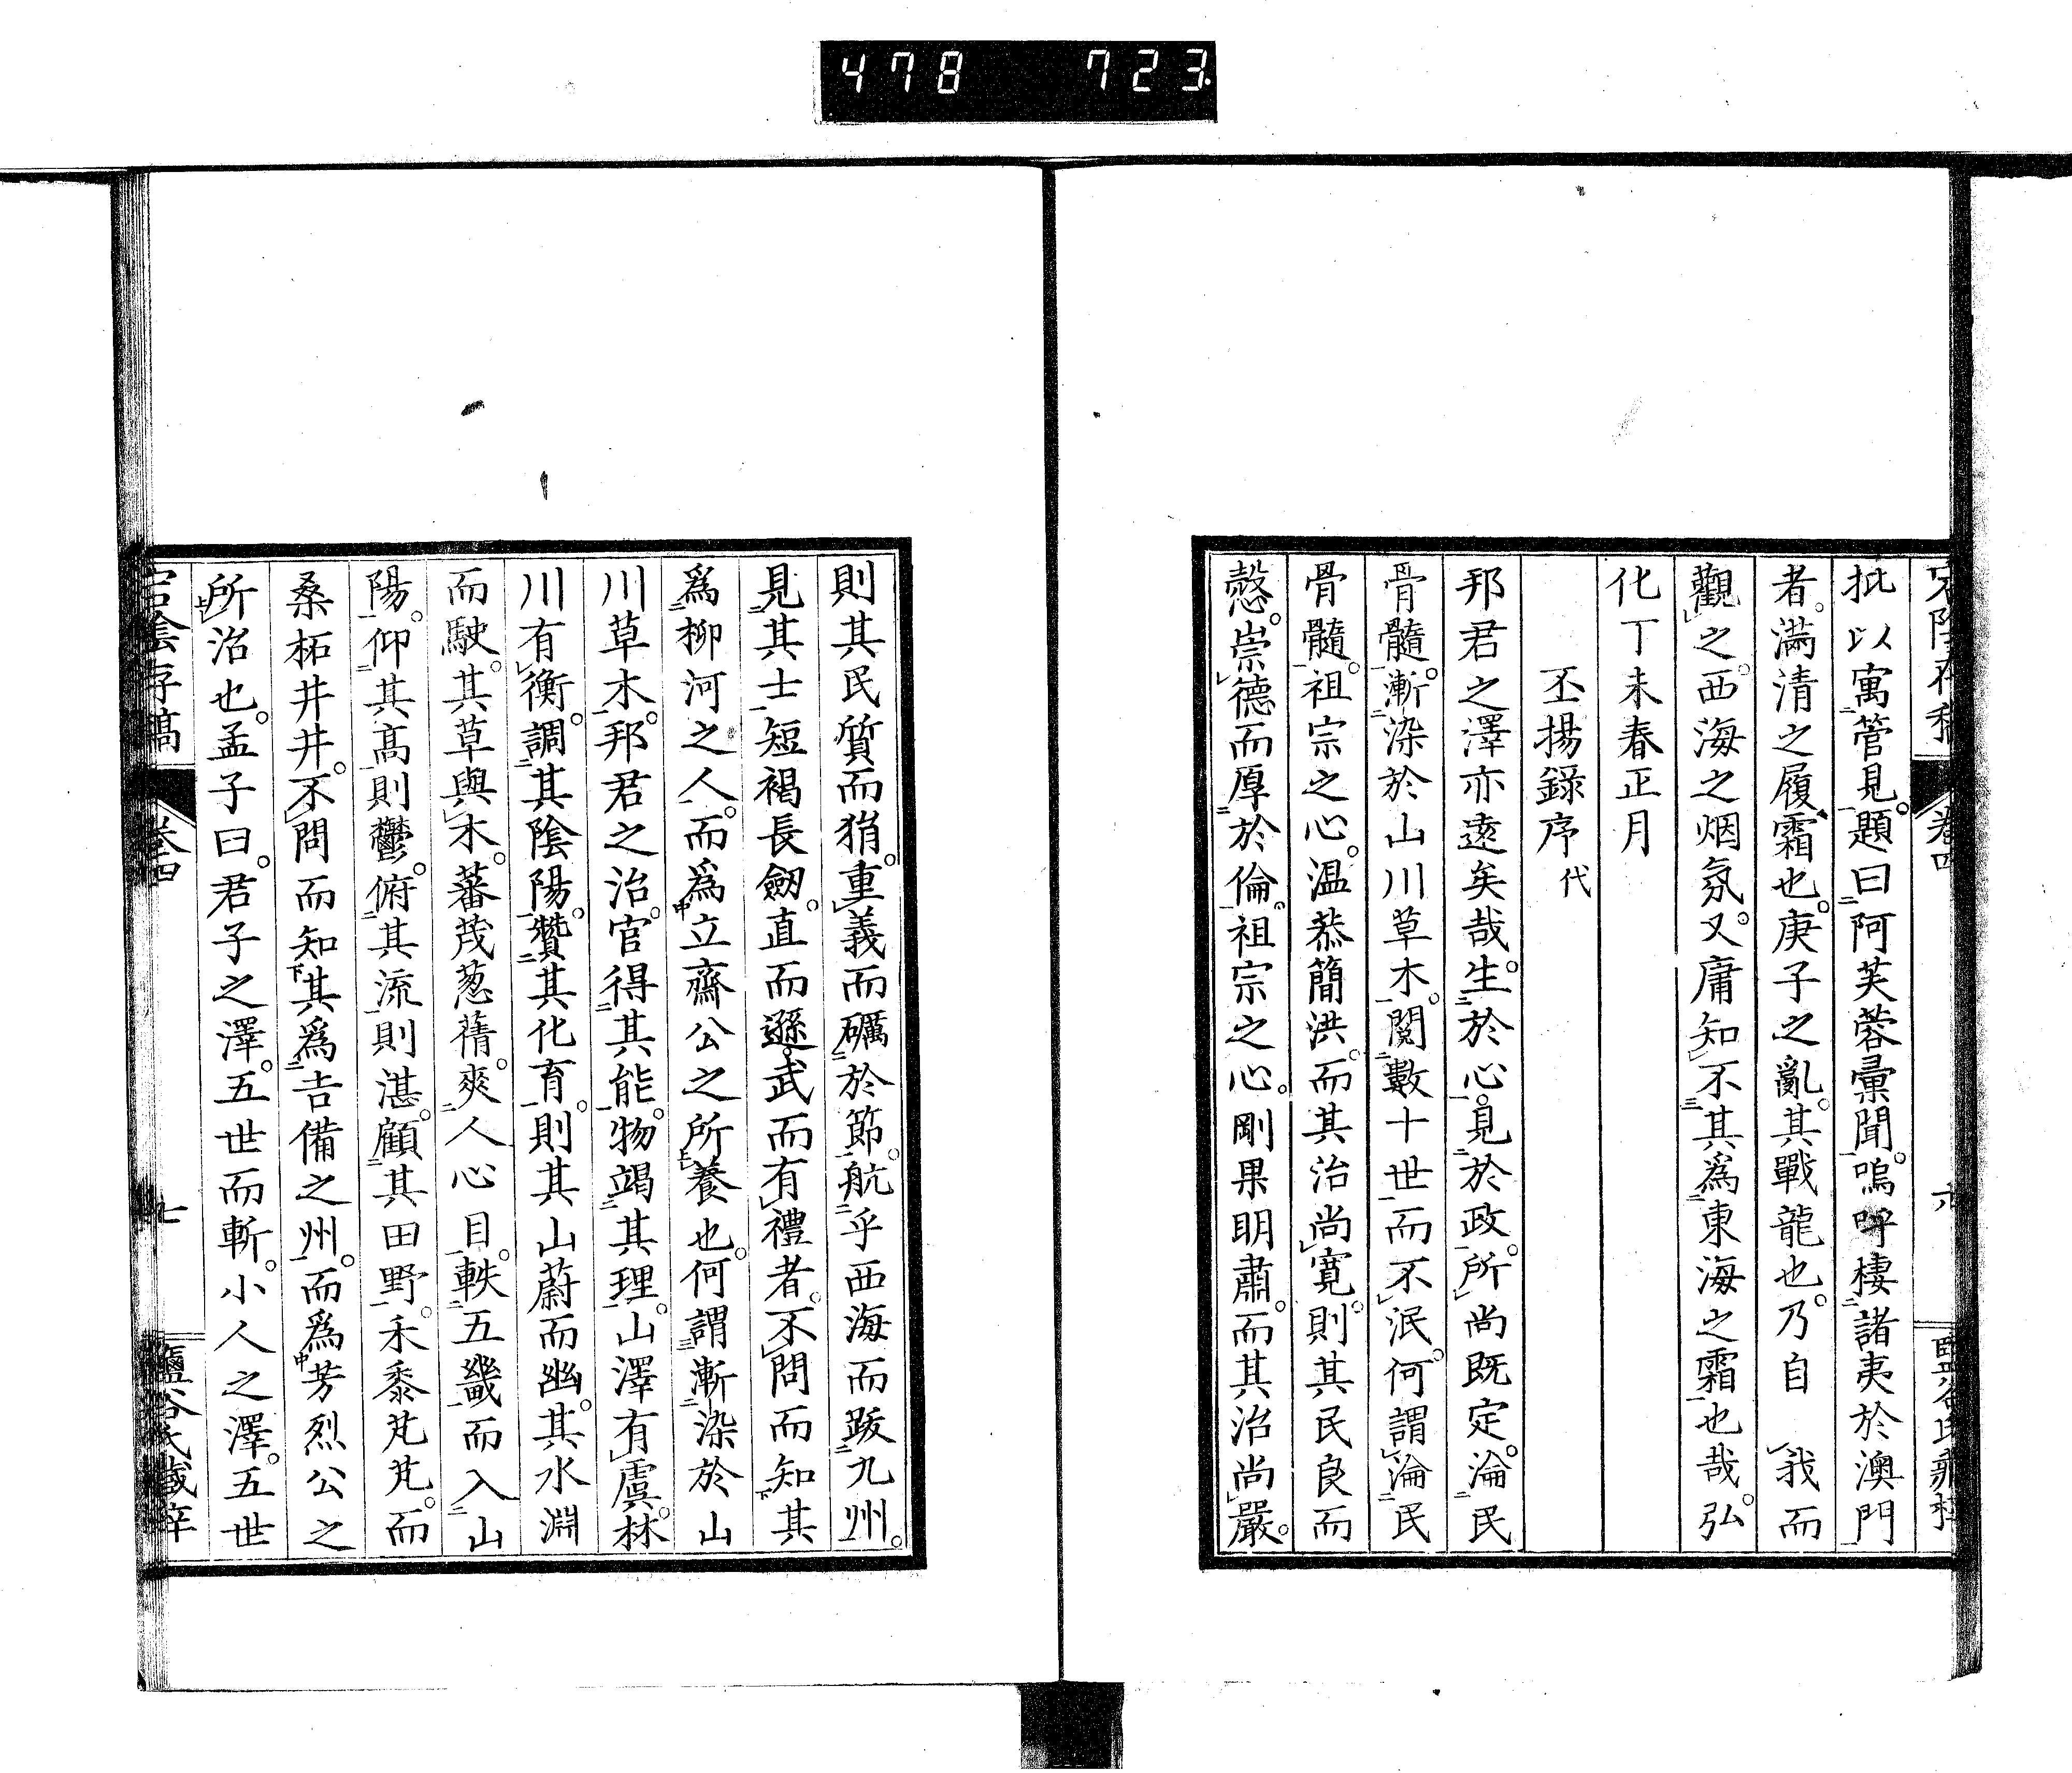 478 723
宕陰存稿 卷四 六
批以寓管見。題曰阿芙蓉彙聞。嗚呼棲諸夷於澳門
者。滿清之履霜也。庚子之亂。其戰龍也。乃自 我而
觀之。西海之烟氛。又庸知不其爲東海之霜也哉。弘
化丁未春正月
丕揚錄序 代
邦君之澤亦遠矣哉。生於心。見於政。所尚既定。淪民
骨髓。漸染於山川草木。閱數十世而不泯。何謂淪民
骨髓。祖宗之心。温恭簡洪。而其治尚寬。則其民良而
愨。崇德而厚於倫。祖宗之心。剛果明肅。而其治尚嚴。
則其民質而狷。重義而礪於節。航乎西海而跋九州。
見其士短褐長劒。直而遜。武而有禮者。不問而知其
爲柳河之人。而爲立齋公之所養也。何謂漸染於山
川草木。邦君之治。官得其能。物竭其理。山澤有虞。林
川有衡。調其陰陽。贊其化育。則其山蔚而幽。其水淵
而駛。其草與木。蕃茂葱蒨。爽人心目。軼五畿而入山
陽。仰其高則鬱。俯其流則湛。顧其田野。禾黍芃芃。而
桑柘井井。不問而知其爲吉備之州。而爲芳烈公之
所治也。孟子曰。君子之澤。五世而斬。小人之澤。五世
宕陰存稿 卷四 七 鹽谷氏藏梓